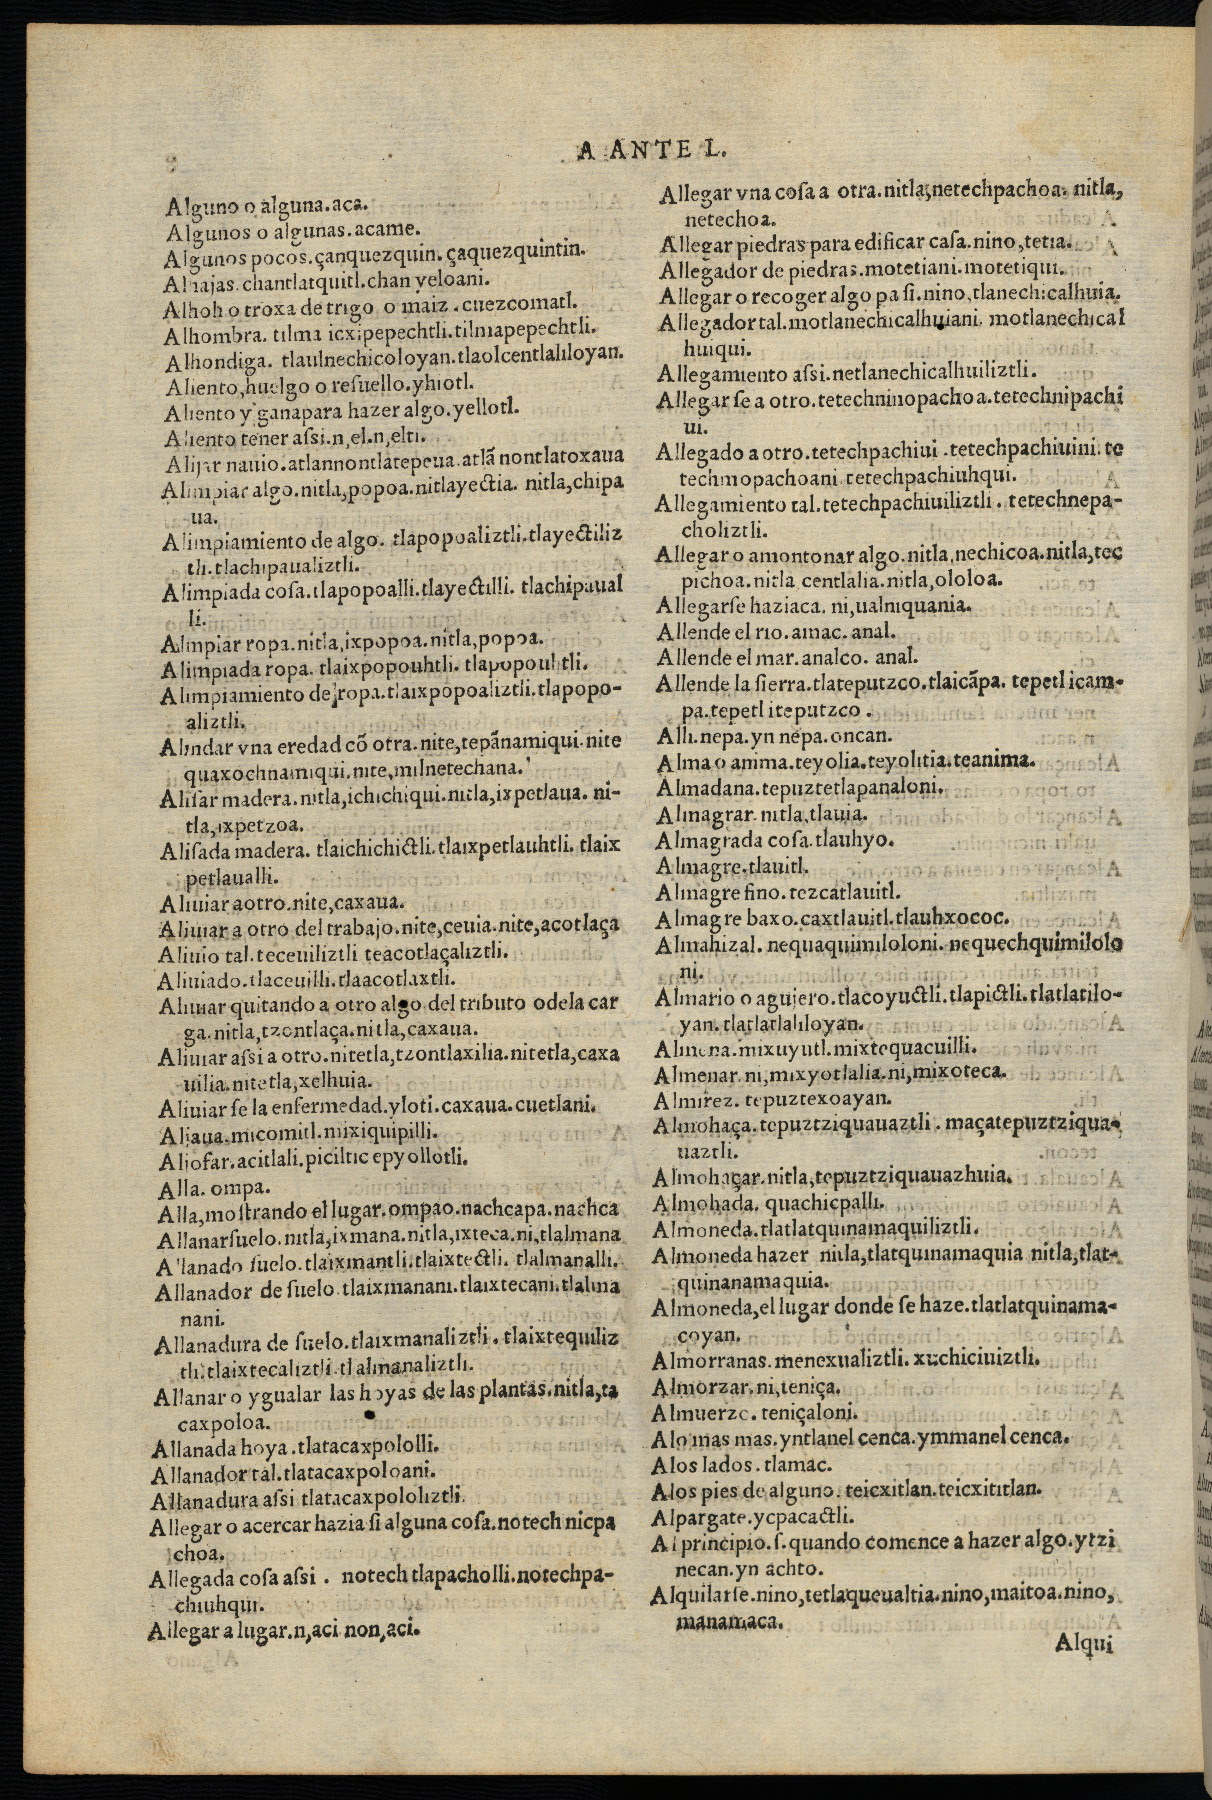 A ANTE L.
Alguno o alguna.aca.
Algunos o algunas.acame.
Algunos pocos.çanquezquin.çaquezquintin.
Alhajas.chantlatquitl.chan yeloani.
Alholi o troxa de trigo o maiz.cuezcomatl.
Alhombra. tilma icxipepechtli.tilmapepechtli.
Alhondiga. tlaulnechicoloyan.tlaolcentlaliloyan.
Aliento,huelgo o resuello.yhiotl.
Aliento y gana para hazer algo.yellotl.
Aliento tener assi.n,el.n,elti.
Alijar nauio.atlannontlatepeua.atlā nontlatoxaua
Alimpiar algo.nitla,popoa.nitlayectia. nitla,chipa
ua.
Alimpiamiento de algo. tlapopoaliztli.tlayectiliz
tli.tlachipaualiztli.
Alimpiada cosa.tlapopoalli.tlayectilli. tlachipaual
li.
Alimpiar ropa.nitla,ixpopoa.nitla,popoa.
Alimpiada ropa. tlaixpopouhtli. tlapopouhtli.
Alimpiamiento de ropa.tlaixpopoaliztli.tlapopo-
aliztli.
Alindar vna eredad cō otra.nite,tepānamiqui.nite
quaxochnamiqui.nite,milnetechana.
Alisar madera.nitla,ichichiqui.nitla,ixpetlaua. ni-
tla,ixpetzoa.
Alisada madera. tlaichichictli.tlaixpetlauhtli. tlaix
petlaualli.
Aliuiar aotro.nite,caxaua.
Aliuiar a otro del trabajo.nite,ceuia.nite,acotlaça
Aliuio tal.teceuiliztli teacotlaçaliztli.
Aliuiado.tlaceuilli.tlaacotlaxtli.
Aliuiar quitando a otro algo del tributo odela car
ga.nitla,tzontlaça.nitla,caxaua.
Aliuiar assi a otro.nitetla,tzontlaxilia.nitetla,caxa
uilia.nitetla,xelhuia.
Aliuiar se la enfermedad.yloti.caxaua.cuetlani.
Aljaua.micomitl.mixiquipilli.
Aljofar.acitlali.piciltic epyollotli.
Alla. ompa.
Alla,mostrando el lugar.ompao.nachcapa.nachca
Allanarsuelo.nitla,ixmana.nitla,ixteca.ni,tlalmana
Allanado suelo.tlaixmantli.tlaixtectli. tlalmanalli.
Allanador de suelo.tlaixmanani.tlaixtecani.tlalma
nani.
Allanadura de suelo.tlaixmanaliztli.tlaixtequiliz
tli.tlaixtecaliztli.tlalmanaliztli.
Allanar o ygualar las hoyas de las plantas.nitla,ta
caxpoloa.
Allanada hoya.tlatacaxpololli.
Allanador tal.tlatacaxpoloani.
Allanadura assi tlatacaxpololiztli.
Allegar o acercar hazia si alguna cosa.notech nicpa
choa.
Allegada cosa assi. notech tlapacholli.notechpa-
chiuhqui.
Allegar a lugar.n,aci non,aci.
Allegar vna cosa a otra.nitla,netechpachoa. nitla,
netechoa.
Allegar piedras para edificar casa.nino,tetia.
Allegador de piedras.motetiani.motetiqui.
Allegar o recoger algo pa si.nino,tlanechicalhuia.
Allegador tal.motlanechicalhuiani. motlanechical
huiqui.
Allegamiento assi.netlanechicalhuiliztli.
Allegar se a otro.tetechninopachoa.tetechnipachi
ui.
Allegado a otro.tetechpachiui.tetechpachiuini.te
techmopachoani.tetechpachiuhqui.
Allegamiento tal.tetechpachiuiliztli. tetechnepa-
choliztli.
Allegar o amontonar algo.nitla,nechicoa.nitla,tec
pichoa.nitla centlalia.nitla,ololoa.
Allegarse haziaca. ni,ualniquania.
Allende el rio.amac. anal.
Allende el mar.analco. anal.
Allende la sierra.tlateputzco.tlaicāpa. tepetl icam-
pa.tepetl iteputzco.
Alli.nepa.yn nepa.oncan.
Alma o anima.teyolia.teyolitia.teanima.
Almadana.tepuztetlapanaloni.
Almagrar.nitla,tlauia.
Almagrada cosa.tlauhyo.
Almagre.tlauitl.
Almagre fino.tezcatlauitl.
Almagre baxo.caxtlauitl.tlauhxococ.
Almahizal. nequaquimiloloni. nequechquimilolo
ni.
Almario o agujero.tlacoyuctli.tlapictli.tlatlatilo-
yan.tlatlatlaliloyan.
Almena.mixuyutl.mixtequacuilli.
Almenar.ni,mixyotlalia.ni,mixoteca.
Almirez. tepuztexoayan.
Almohaça.tepuztziquauaztli. maçatepuztziqua-
uaztli.
Almohaçar.nitla,tepuztziquauazhuia.
Almohada. quachicpalli.
Almoneda.tlatlatquinamaquiliztli.
Almoneda hazer nitla,tlatquinamaquia nitla,tlat-
quinanamaquia.
Almoneda,el lugar donde se haze.tlatlatquinama-
coyan.
Almorranas.menexualiztli.xuchiciuiztli.
Almorzar.ni,teniça.
Almuerzo.teniçaloni.
Alo mas mas.yntlanel cenca.ymmanel cenca.
Alos lados.tlamac.
Alos pies de alguno.teicxitlan.teicxititlan.
Alpargate.ycpacactli.
Al principio.s.quando comence a hazer algo.ytzi
necan.yn achto.
Alquilarse.nino,tetlaqueualtia.nino,maitoa.nino,
manamaca.
Alqui